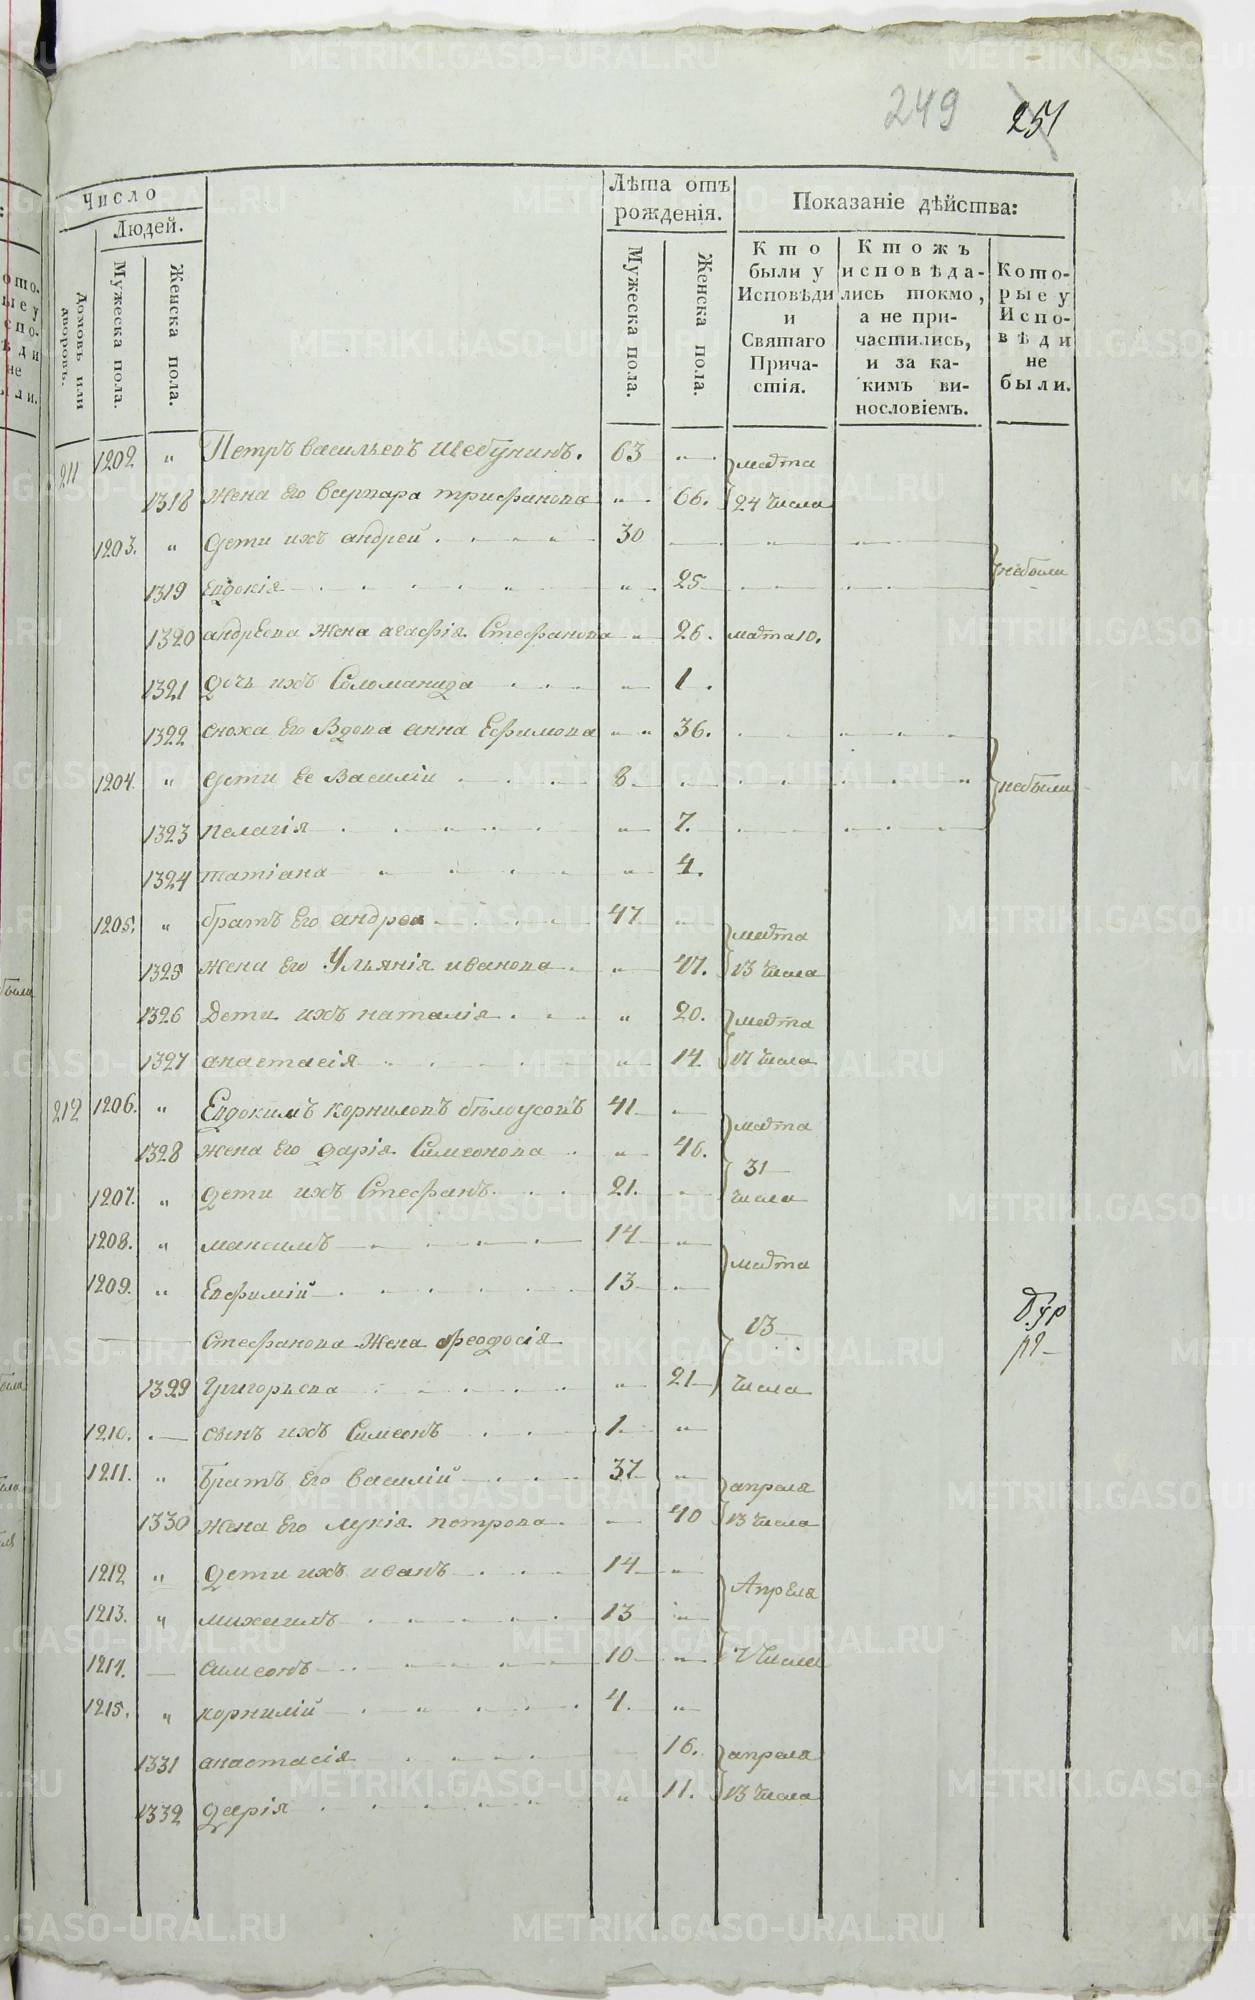 249 251
Число
Людей.
Домовъ или дворовъ.
Мужеска пола.
Женска пола.
Лѣта отъ рожденія.
Мужеска пола.
Женска пола.
Показаніе дѣйства:
Кто были у Исповѣди и Святаго Прича-стія.
Ктожъ исповѣда-лись токмо, а не при-частились, и за ка-кимъ ви-нословіемъ.
Кото-рые у Испо-вѣди не были.
211 1202 " Петръ Васильевъ Шебунинъ. 63 " марта
1318 жена Его Варвара трифанова " 66. 24 числа
1203. " дети ихъ андрей 30
1319 Евдокія " 25 небыли
1320 андрѣева жена агафія Стефанова " 26. марта 10.
1321 дочь ихъ Соломанида " 1.
1322 сноха Его Вдова анна Ефимова " 36.
1204. " дети Ее Василіи 8. небыли
1323 пелагія " 7.
1324 татіана " 4.
1205. " братъ Его андрей 47 " марта
1325 жена Его Ульянія иванова " 47. 13 числа
1326 Дети ихъ наталія " 20. марта
1327 анастасія " 14 17 числа
212 1206. " Евдокимъ корниловъ бѣлоусовъ 41 марта
1328 жена Его дарія Симеонова " 46. 31
1207. " дети ихъ Стефанъ 21. " числа
1208. " максимъ 14 "
1209. " Евфимій 13 марта
Стефанова жена феодосія 13
1329 Григорьева " 21 числа
1210. сынъ ихъ Симеонъ 1 "
1211. " Братъ Его Василій 37 " апреля
1330 жена Его лукія петрова 40 13 числа
1212 " дети ихъ иванъ 14 " Апреля
1213. " михаилъ 13 "
1214. симеонъ 10 " 7 числа
1215. " корнилій 4. "
1331 анастасія 16. апреля
1332 дарія " 11. 13 числа
METRIKI.GASO-URAL.RU